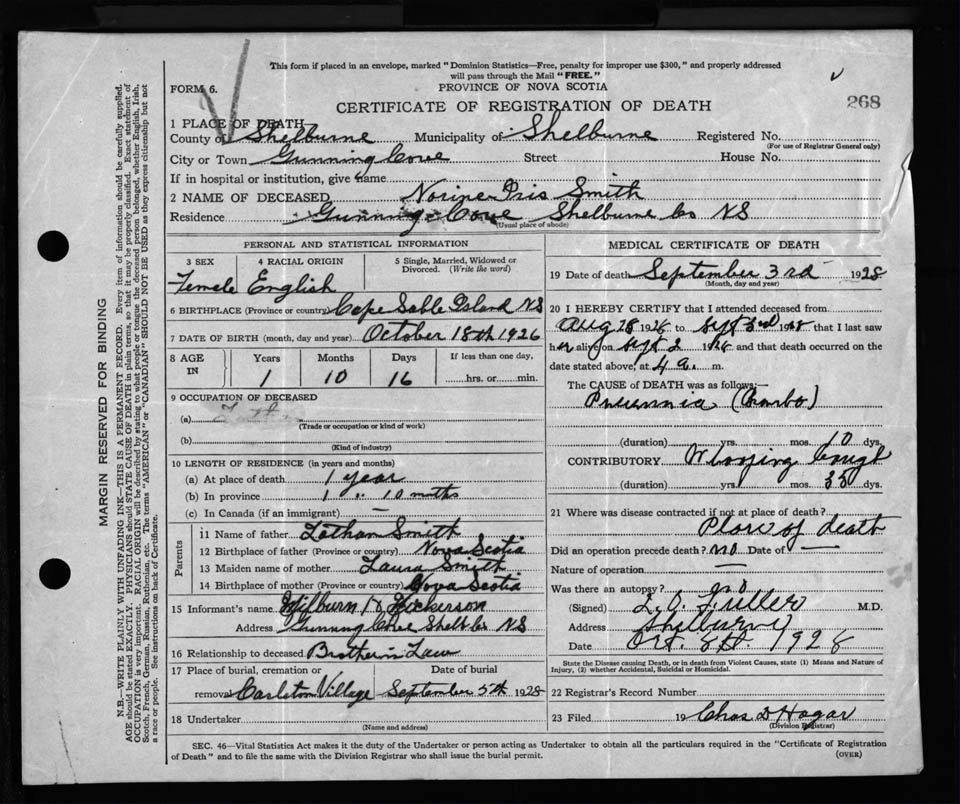 This form if placed in an envelope, marked "Dominion Statistics—Free, penalty for improper use $300," and properly addressed
will pass through the Mail "FREE."
FORM 6.
PROVINCE OF NOVA SCOTIA
268
CERTIFICATE OF REGISTRATION OF DEATH
1 PLACE OF DEATH
County of Shelburne Municipality of Shelburne Registered No.
(For use of Registrar General only)
City or Town Gunning Cove Street House No.
If in hospital or institution, give name
2 NAME OF DECEASED Norine Iris Smith
Residence Gunning Cove Shelburne Co NS
(Usual place of abode)
PERSONAL AND STATISTICAL INFORMATION
3 SEX 4 RACIAL ORIGIN 5 Single, Married, Widowed or Divorced. (Write the word)
Female English
6 BIRTHPLACE (Province or country) Cape Sable Island NS
7 DATE OF BIRTH (month, day and year) October 18th 1926
8 AGE IN Years Months Days If less than one day,
1 10 16 hrs. or min.
9 OCCUPATION OF DECEASED
(a)
(Trade or occupation or kind of work)
(b)
(Kind of industry)
10 LENGTH OF RESIDENCE (in years and months)
(a) At place of death 1 year
(b) In province 1 " 10 months
(c) In Canada (if an immigrant) —
Parents
11 Name of father Lothan Smith
12 Birthplace of father (Province or country) Nova Scotia
13 Maiden name of mother Laura Smith
14 Birthplace of mother (Province or country) Nova Scotia
15 Informant's name Wilburn Nickerson
Address Gunning Cove Shelb Co NS
16 Relationship to deceased Brother in Law
17 Place of burial, cremation or Date of burial
removal Carleton Village September 5th 1928
18 Undertaker
(Name and address)
MEDICAL CERTIFICATE OF DEATH
19 Date of death September 3rd 1928
(Month, day and year)
20 I HEREBY CERTIFY that I attended deceased from
Aug 28 1928 to Sept 3rd 1928 that I last saw
her alive on Sept 2 1928 and that death occurred on the
date stated above, at 4 a. m.
The CAUSE of DEATH was as follows:—
Pneumnia
(duration) yrs. mos. 10 dys.
CONTRIBUTORY Whooping Cough
(duration) yrs. mos. 35 dys.
21 Where was disease contracted if not at place of death?
Place of death
Did an operation precede death? no Date of —
Nature of operation —
Was there an autopsy? no
(Signed) L. O. Fuller M.D.
Address Shelburne
Date Oct. 8th. 1928
State the Disease causing Death, or in death from Violent Causes, state (1) Means and Nature of
Injury, (2) whether Accidental, Suicidal or Homicidal.
22 Registrar's Record Number
23 Filed 19 Chas D Hagar
(Division Registrar)
SEC. 46—Vital Statistics Act makes it the duty of the Undertaker or person acting as Undertaker to obtain all the particulars required in the "Certificate of Registration
of Death" and to file the same with the Division Registrar who shall issue the burial permit.
(OVER)
MARGIN RESERVED FOR BINDING
N.B.—WRITE PLAINLY WITH UNFADING INK—THIS IS A PERMANENT RECORD. Every item of information should be carefully supplied.
AGE should be stated EXACTLY. PHYSICIANS should STATE CAUSE OF DEATH in plain terms, so that it may be properly classified. Exact statement of
OCCUPATION is very important. RACIAL ORIGIN will be described by stating to what people or tongue the deceased person belonged, whether English, Irish,
Scotch, French, German, Russian, Ruthenian, etc. The terms "AMERICAN" or "CANADIAN" SHOULD NOT BE USED as they express citizenship but not
a race or people. See instructions on back of Certificate.